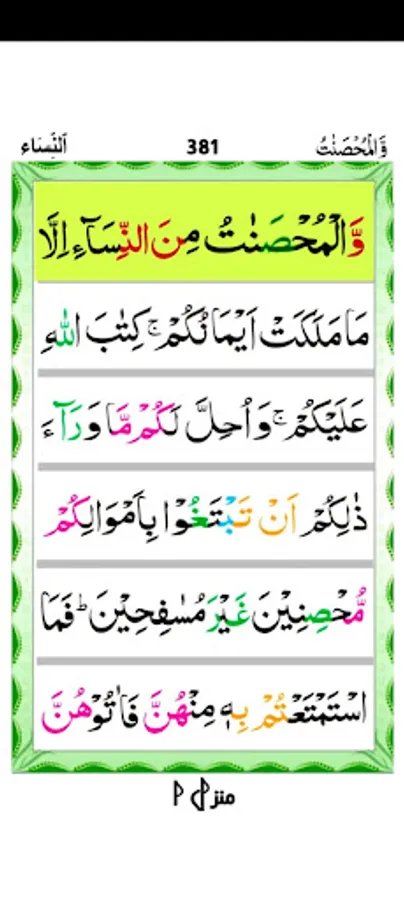 اَلنِّسَاء 381 وَّالۡمُحۡصَنٰتُ
وَّالۡمُحۡصَنٰتُ مِنَ النِّسَآءِ اِلَّا
مَا مَلَكَتۡ اَيۡمَانُكُمۡ‌ۚ كِتٰبَ اللّٰهِ
عَلَيۡكُمۡ‌ۚ وَاُحِلَّ لَـكُمۡ مَّا وَرَآءَ
ذٰ لِكُمۡ اَنۡ تَبۡتَغُوۡا بِاَمۡوَالِكُمۡ
مُّحۡصِنِيۡنَ غَيۡرَ مُسٰفِحِيۡنَ‌ؕ فَمَا
اسۡتَمۡتَعۡتُمۡ بِهٖ مِنۡهُنَّ فَاٰتُوۡهُنَّ
منزل ١